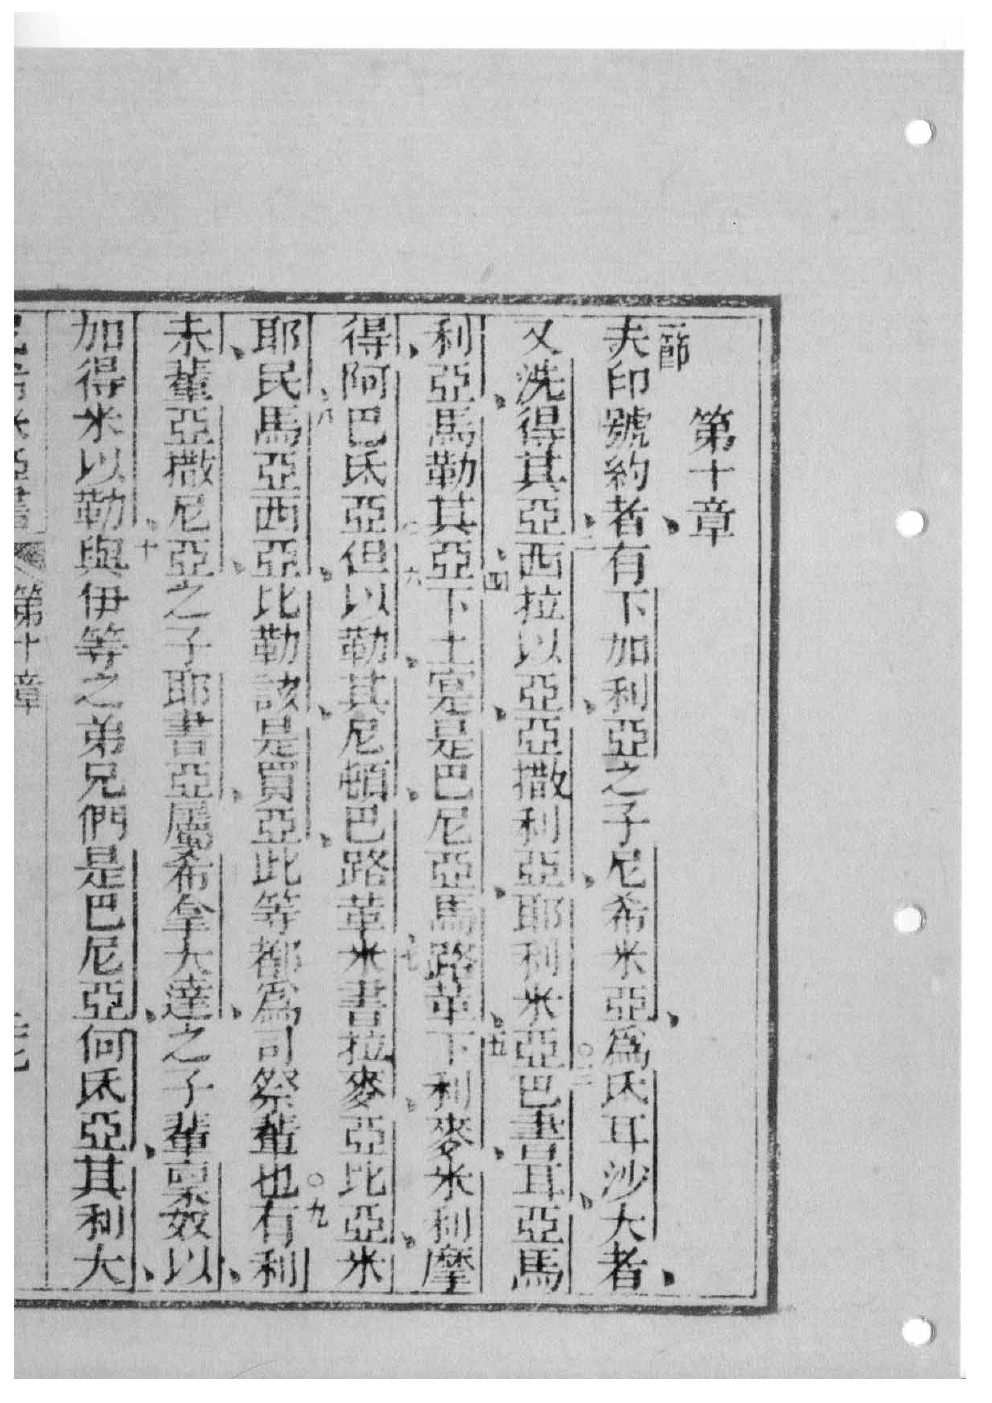 第十章
一節
夫印號約者有下加利亞之子尼希米亞爲氐耳沙大者
二
又洗得其亞西拉以亞亞撒利亞耶利米亞巴書耳亞馬
三
利亞馬勒其亞下土寔是巴尼亞馬路革下利麥米利摩
四
五
得阿巴氐亞但以勒其尼頓巴路革米書拉麥亞比亞米
六
七
耶民馬亞西亞比勒該是買亞此等都爲司祭輩也有利
八
九
未輩亞撒尼亞之子耶書亞屬希拿大達之子輩稟奴以
加得米以勒與伊等之弟兄們是巴尼亞何氐亞其利大
十
第十章